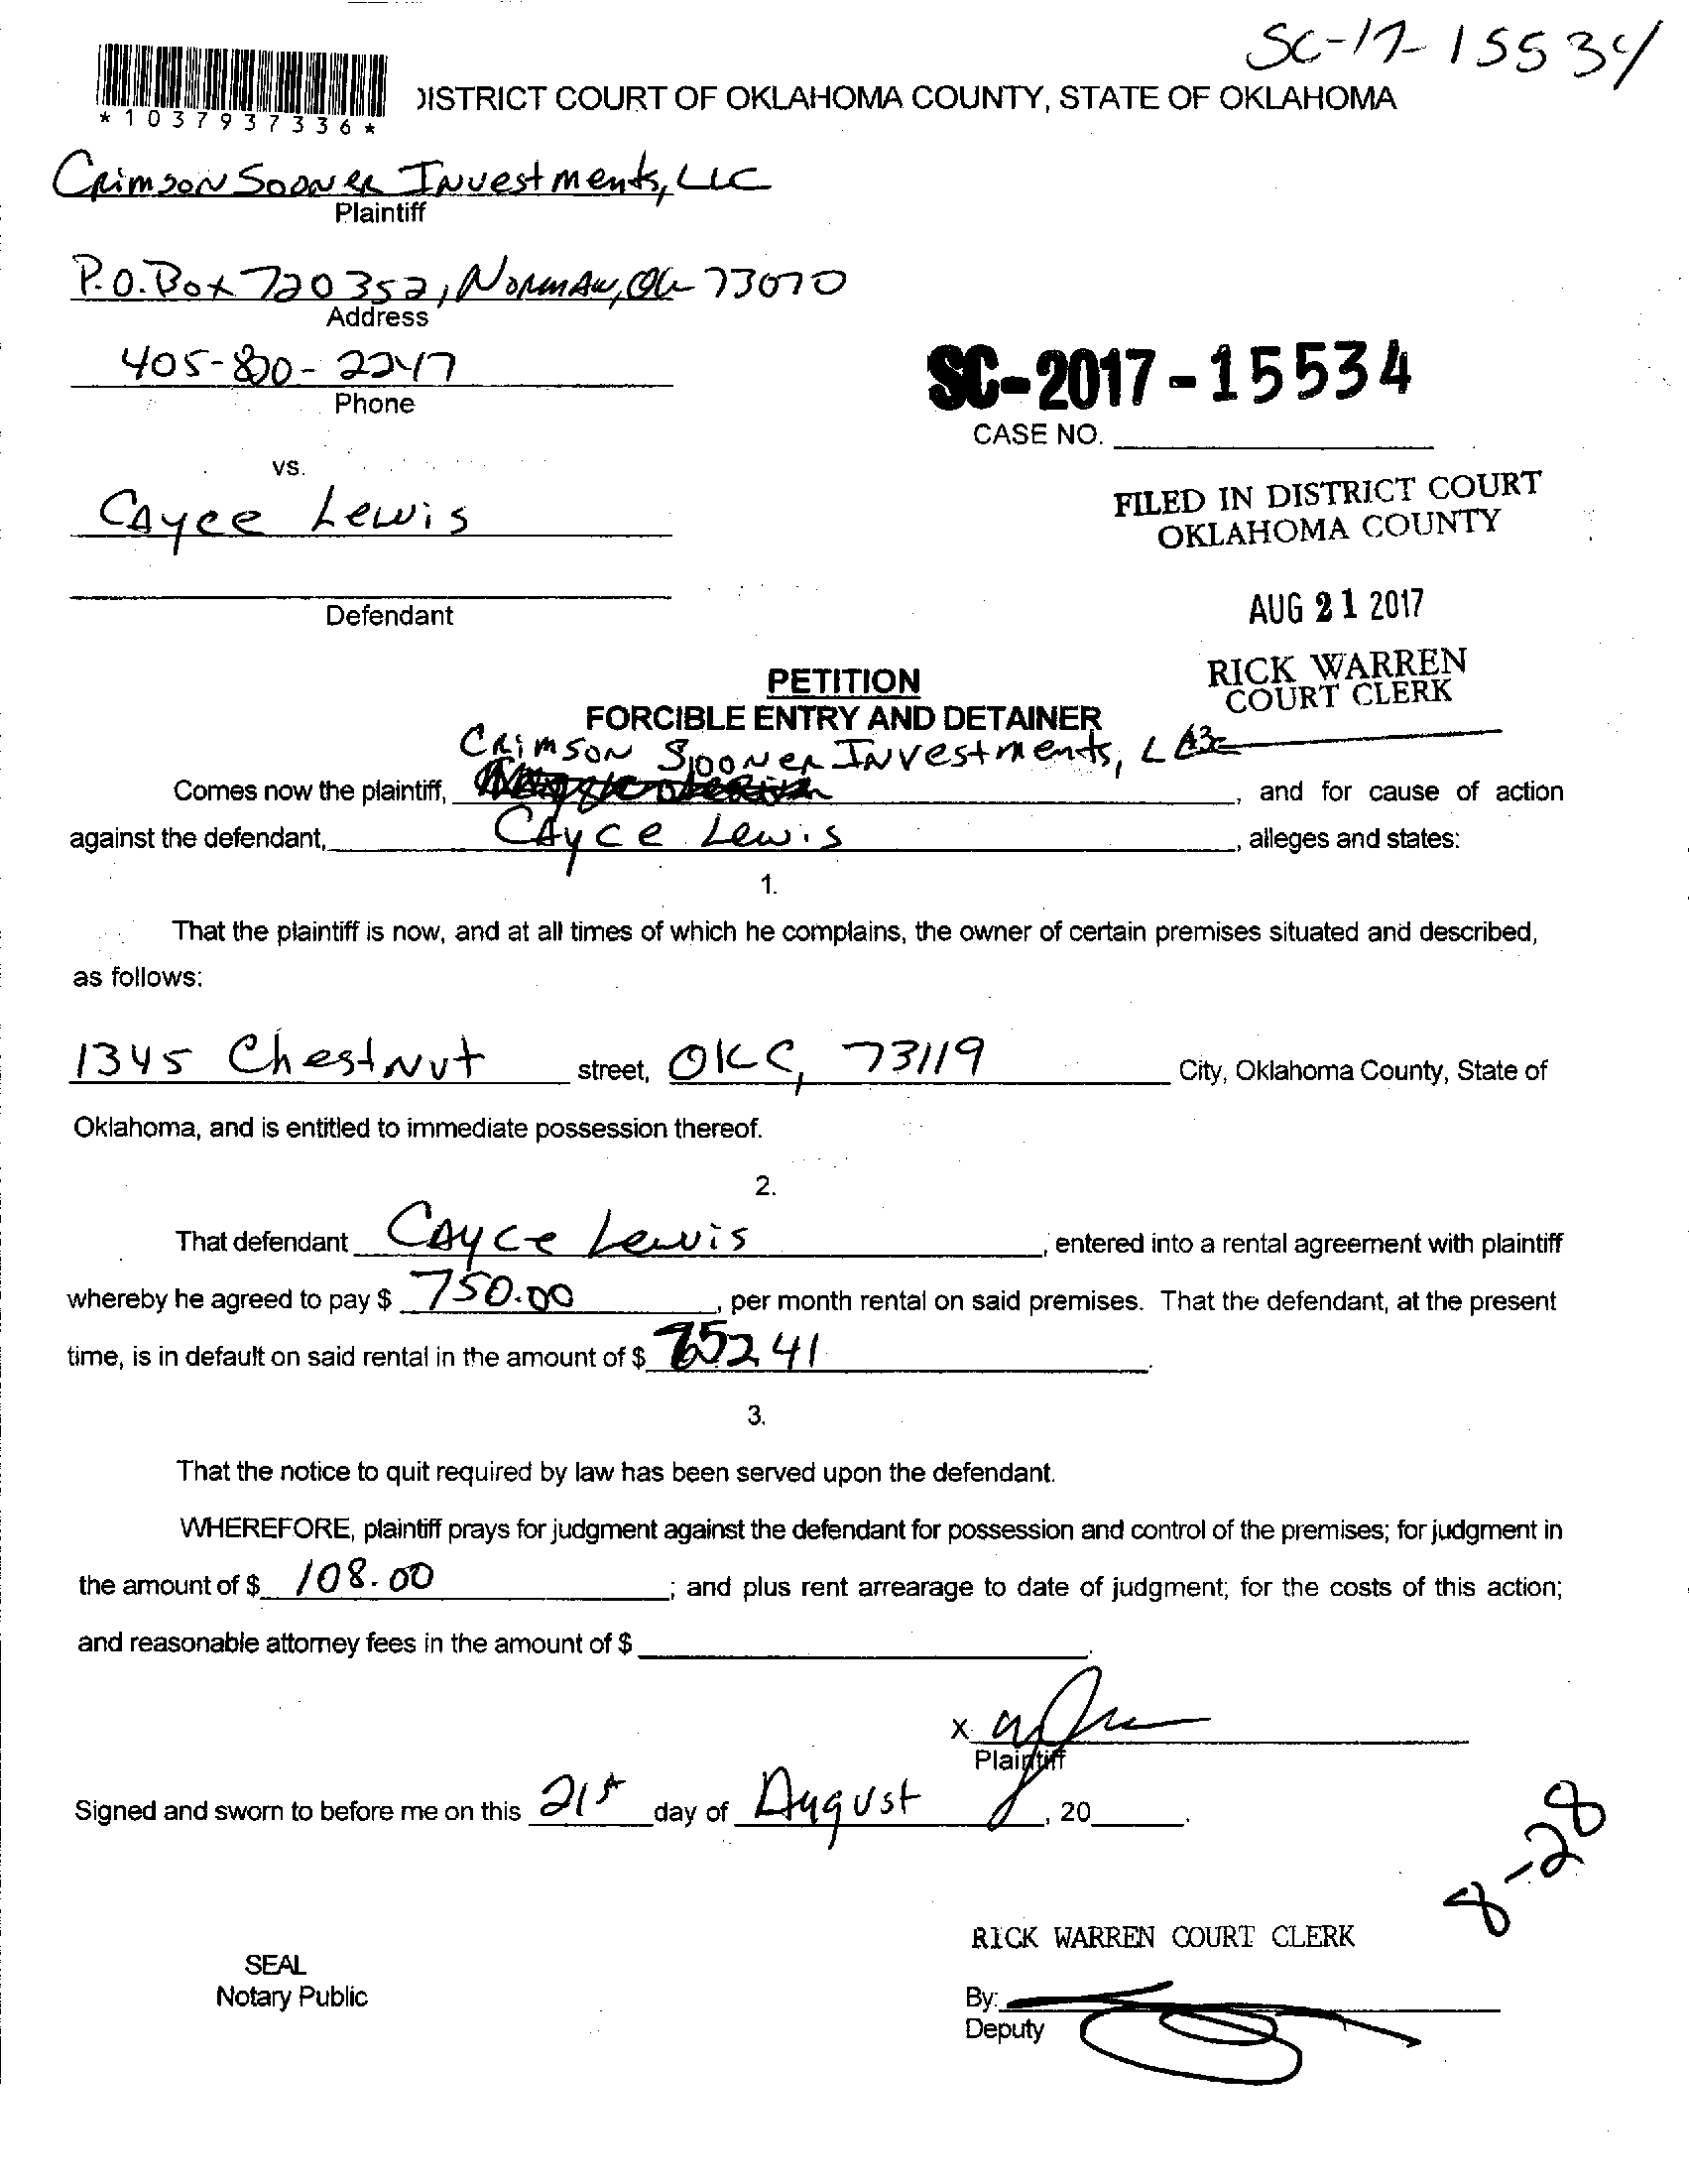 SC-17-15534
*1037937336*
DISTRICT COURT OF OKLAHOMA COUNTY, STATE OF OKLAHOMA
Crimson Sooner Investments, LLC
Plaintiff
P.O. Box 720352, Norman, OK 73070
Address
405-820-2247
Phone
SC-2017-15534
CASE NO.
vs.
Cayce Lewis
FILED IN DISTRICT COURT
OKLAHOMA COUNTY
Defendant
AUG 21 2017
RICK WARREN
COURT CLERK
PETITION
FORCIBLE ENTRY AND DETAINER
Crimson Sooner Investments,
Comes now the plaintiff, , and for cause of action
against the defendant, Cayce Lewis, alleges and states:
1.
That the plaintiff is now, and at all times of which he complains, the owner of certain premises situated and described,
as follows:
1345 Chestnut street, OKC, 73119 City, Oklahoma County, State of
Oklahoma, and is entitled to immediate possession thereof.
2.
That defendant Cayce Lewis, entered into a rental agreement with plaintiff
whereby he agreed to pay $ 750.00, per month rental on said premises. That the defendant, at the present
time, is in default on said rental in the amount of $ .
3.
That the notice to quit required by law has been served upon the defendant.
WHEREFORE, plaintiff prays for judgment against the defendant for possession and control of the premises; for judgment in
the amount of $ 108.00; and plus rent arrearage to date of judgment; for the costs of this action;
and reasonable attorney fees in the amount of $ .
X
Plaintiff
Signed and sworn to before me on this 21st day of August, 20 .
8-28
RICK WARREN COURT CLERK
SEAL
Notary Public
By:
Deputy